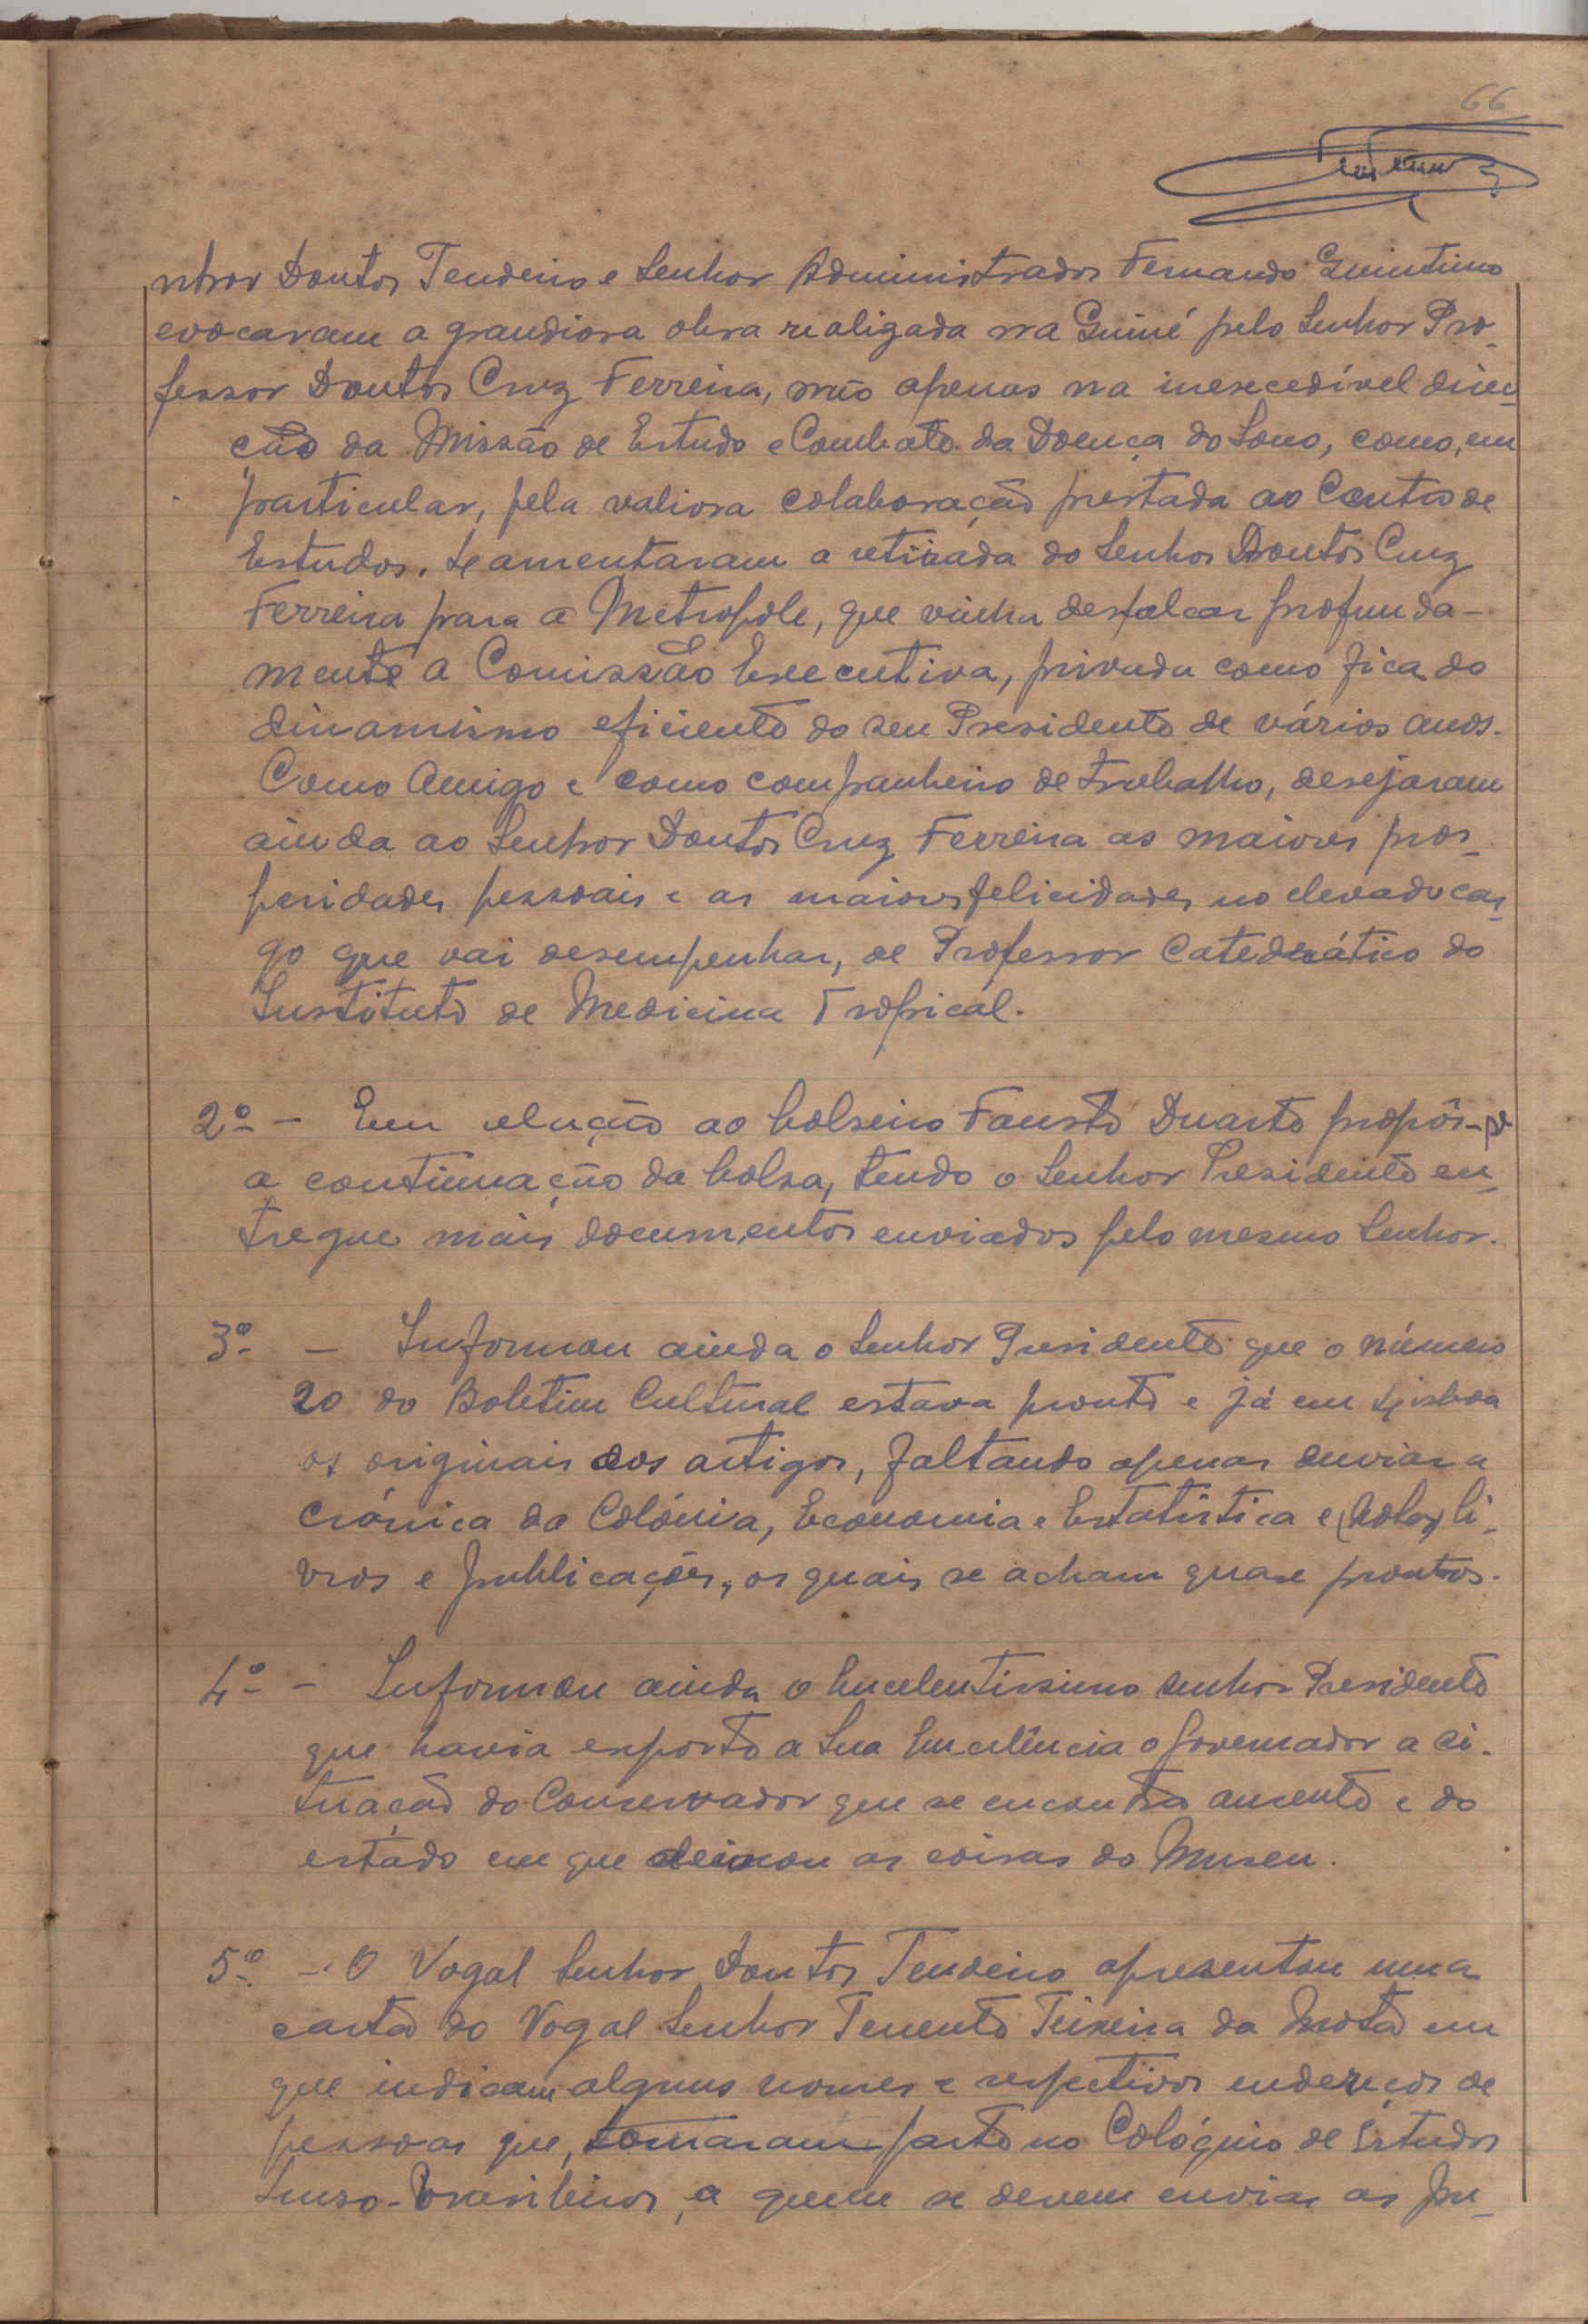 66
nhor Doutor Tendeiro e Senhor Administrador Fernando Quintino
evocaram a grandiosa obra realizada na Guiné pelo Senhor Pro-
fessor Doutor Cruz Ferreira, não apenas na inexcedível direc-
ção da Missão de Estudo e Combate da Doença do Sono, como, em
particular, pela valiosa colaboração prestada ao Centro de
Estudos. Lamentaram a retirada do Senhor Doutor Cruz
Ferreira para a Metropole, que vinha desfalcar profunda-
mente a Comissão Executiva, privada como fica do
dinamismo eficiente do seu Presidente de vários anos.
Como Amigo e como companheiro de trabalho, desejaram
ainda ao Senhor Doutor Cruz Ferreira as maiores pros-
peridades pessoais e as maiores felicidades no elevado car-
go que vai desempenhar, de Professor Catedrático do
Instituto de Medicina Tropical.
2º - Em relação ao bolseiro Fausto Duarte propôs-se
a continuação da bolsa, tendo o Senhor Presidente en-
tregue mais documentos enviados pelo mesmo Senhor.
3º - Informou ainda o Senhor Presidente que o número
20 do Boletim Cultural estava pronto e já em Lisboa
os originais dos artigos, faltando apenas enviar a
Crónica da Colónia, Economia e Estatística e li-
vros e publicações, os quais se acham quase prontos.
4º - Informou ainda o Excelentissimo Senhor Presidente
que havia exposto a Sua Excelência o Governador a si-
tuação do Conservador que se encontra ausente e do
estado em que deixou as coisas do Museu.
5º - O Vogal Senhor Doutor Tendeiro apresentou uma
carta do Vogal Senhor Tenente Teixeira da Mota em
que indicam alguns nomes e respectivos endereços de
pessoas que, tomaram parte no Colóquio de Estudos
Luso-Brasileiros, a quem se devem enviar as pu-